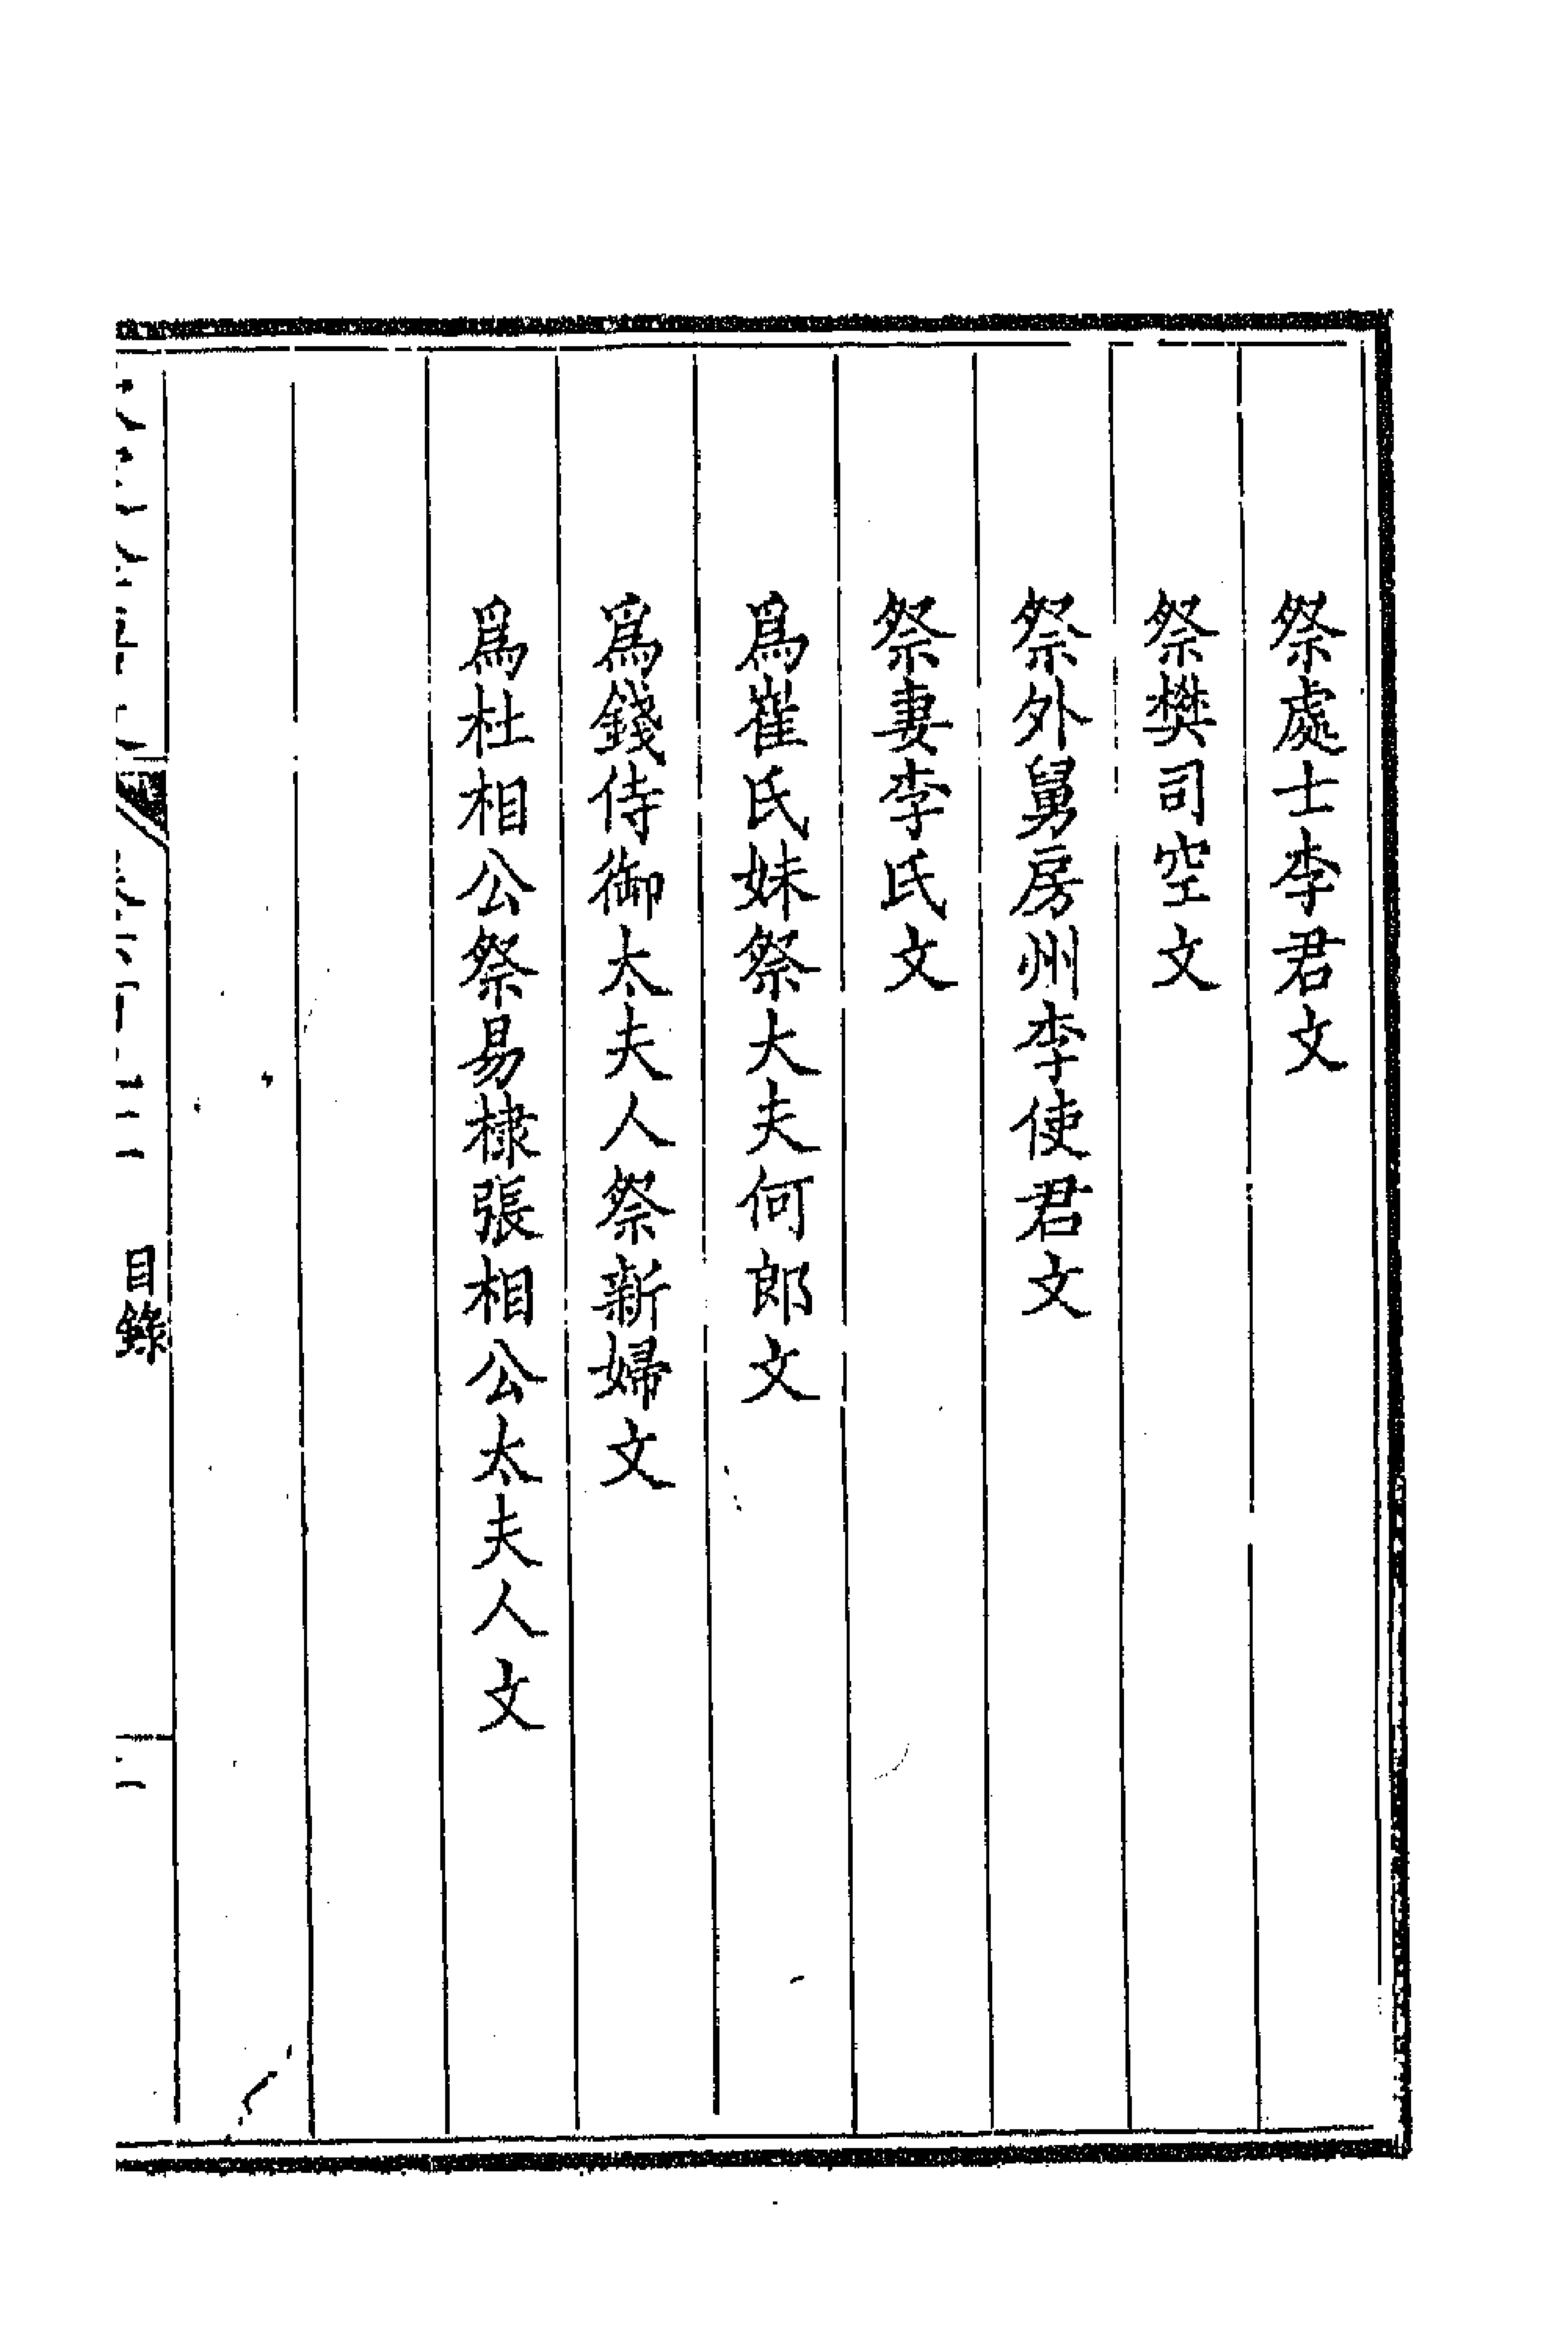 祭處士李君文
祭樊司空文
祭外舅房州李使君文
祭妻李氏文
爲崔氏妹祭大夫何郎文
爲錢侍御太夫人祭新婦文
爲杜相公祭易棣張相公太夫人文
目錄